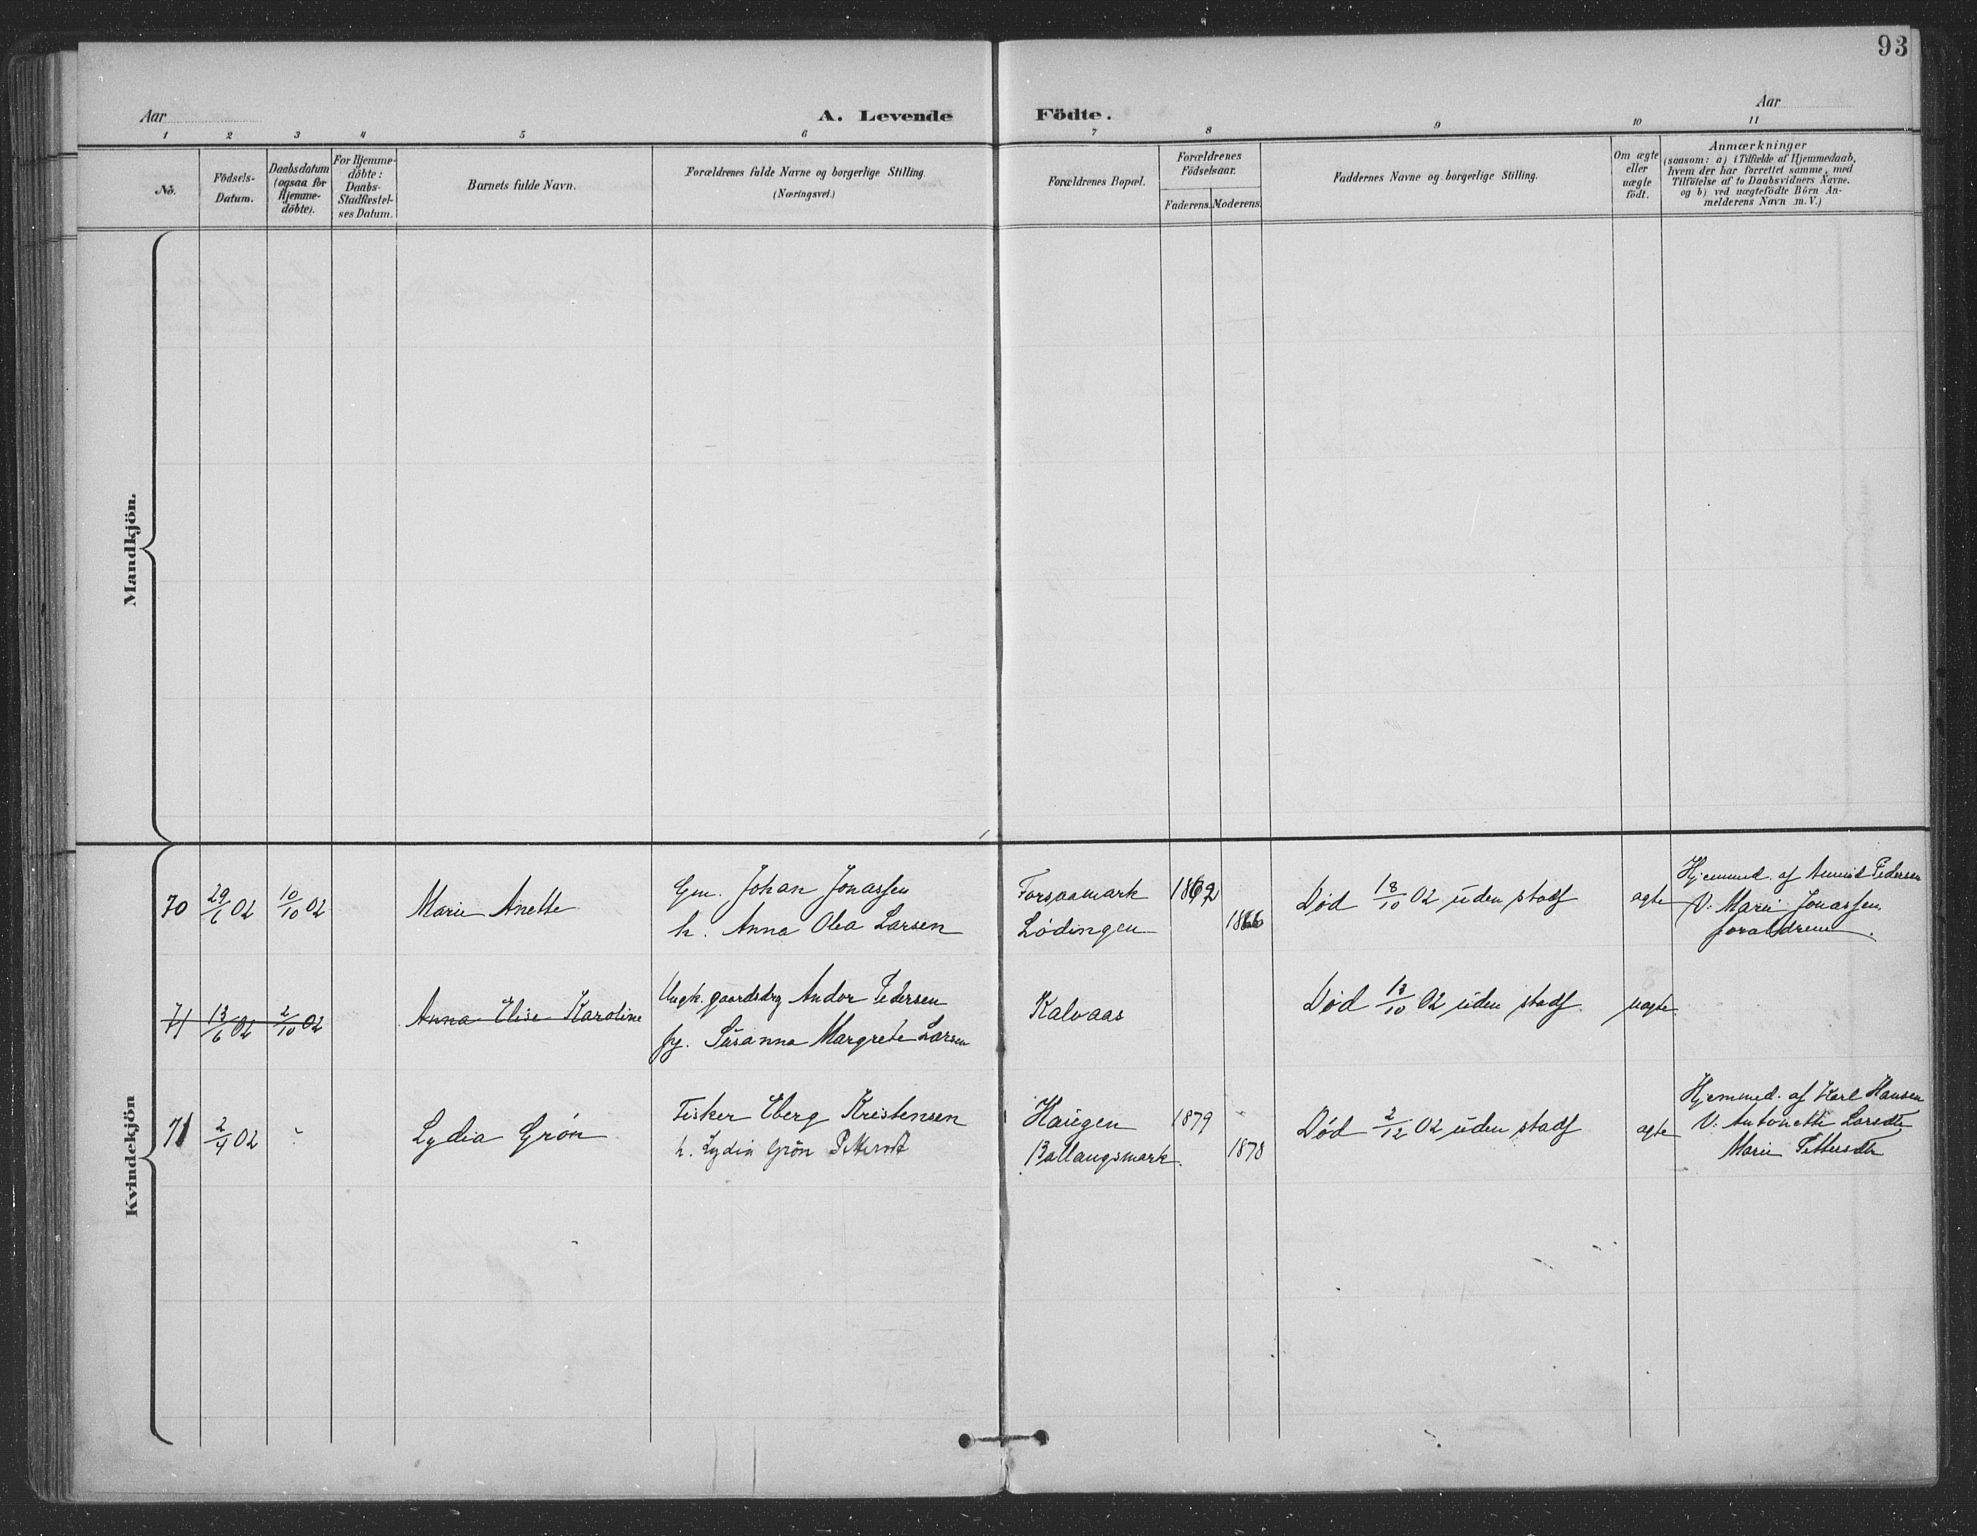 93
Aar
A. Levende Födte.
Aar
1 2 3 4 5 6 7 8 9 10 11
No.
Födsels-Datum.
Daabsdatum (ogsaa for Hjemme-döbte).
For Hjemme-döbte: Daabs-Stadfæstel-ses Datum.
Barnets fulde Navn.
Forældrenes fulde Navne og borgerlige Stilling.
(Næringsvei.)
Forældrenes Bopæl.
Forældrenes Födselsaar.
Faderens. Moderens.
Faddernes Navne og borgerlige Stilling.
Om ægte eller uægte födt.
Anmærkninger
(saasom: a) i Tilfælde af Hjemmedaab,
hvem der har forrettet samme, med
Tilföielse af to Daabsvidners Navne.
og b) ved uægtefödte Börn An-
melderens Navn m. V.)
Mandkjön.
Kvindekjön
70 29/6 02 10/10 02 Marie Anette
Gm. Johan Jonassen
h. Anna Olea Larsen
Forsaamark
Lødingen
1862
1866
Død 18/10 02 uden stadf
ægte
Hjemmed. af Pedersen
V. Marie Jonassen
forældrene.
71 13/6 02 2/10 02 Anna Elise Karoline
Ungk. gaardsdrg Andor Pedersen
pg. Susanna Margrete Larsen
Kalvaas
Død 13/10 02 uden stadf
uægte
71 2/4 02 Lydia Grøn
Fisker Eberg Kristensen
h. Lydia Grøn
Haugen
Ballangsmark.
1879
1878
Død 2/12 02 uden stadf
ægte
Hjemmed. af Karl Hansen
V. Antonette Larsdtr
Marie Pettersdtr